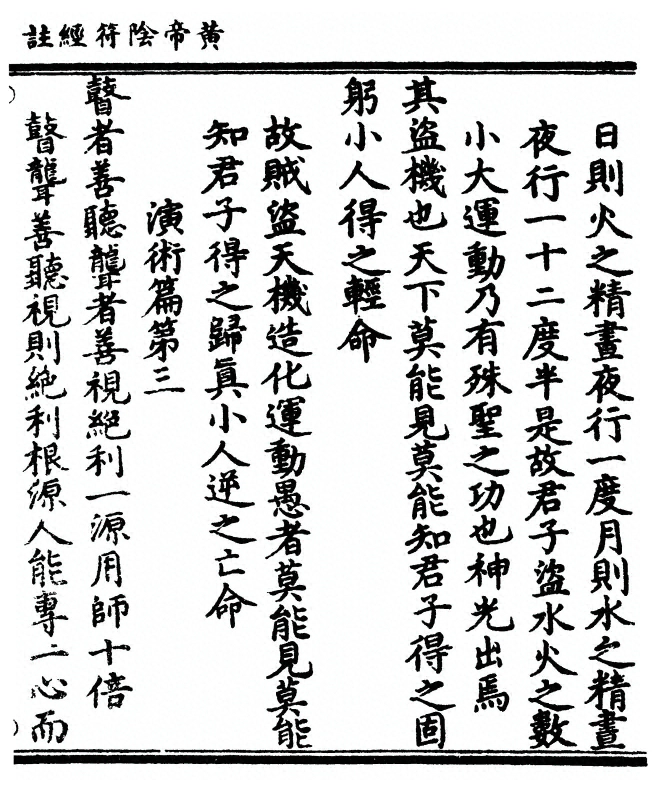 黃帝陰符經註
日則火之精晝夜行一度月則水之精晝
夜行一十二度半是故君子盜水火之數
小大運動乃有殊聖之功也神光出焉
其盜機也天下莫能見莫能知君子得之固
躬小人得之輕命
故賊盜天機造化運動愚者莫能見莫能
知君子得之歸眞小人逆之亡命
演術篇第三
瞽者善聽聾者善視絕利一源用師十倍
瞽聾善聽視則絕利根源人能專一心而